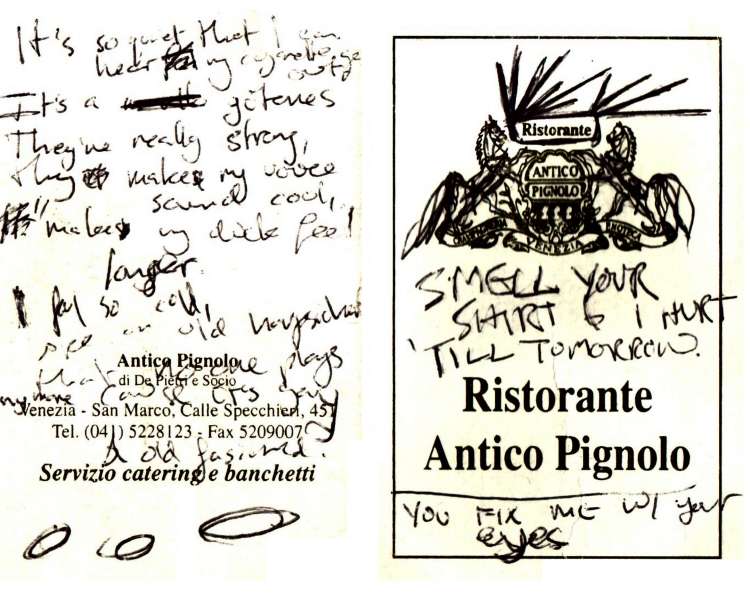 It's so quiet that I can
hear my cigarette go
out
It's a gitanes
They're really strong,
they make my voice
sound cool,
makes my dick feel
longer.
I feel so old,
old harpsichord
that no one plays
anymore cause it's
& old fasioned.
Antico Pignolo
di De Pietri e Socio
Venezia - San Marco, Calle Specchieri, 451
Tel. (041) 5228123 - Fax 5209007
Servizio catering e banchetti
Ristorante
ANTICO
PIGNOLO
VENEZIA
ENOTECA
SMELL YOUR
SHIRT & I HURT
'TILL TOMORROW.
Ristorante
Antico Pignolo
YOU FIX ME W/ your
eyes